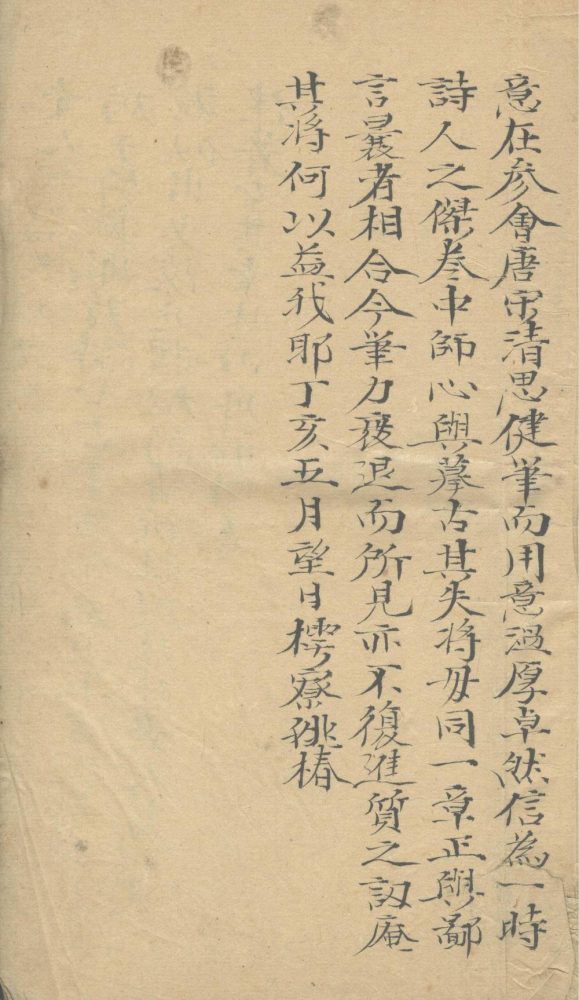 意在參會唐宋清思健筆而用意過厚卓然信為一時
詩人之傑卷中師心與摹古其失將毋同一章正與鄙
言曩者相合今筆力衰退而所見亦不復進質之訒庵
其將何以益我耶丁亥五月望日樗寮姚椿